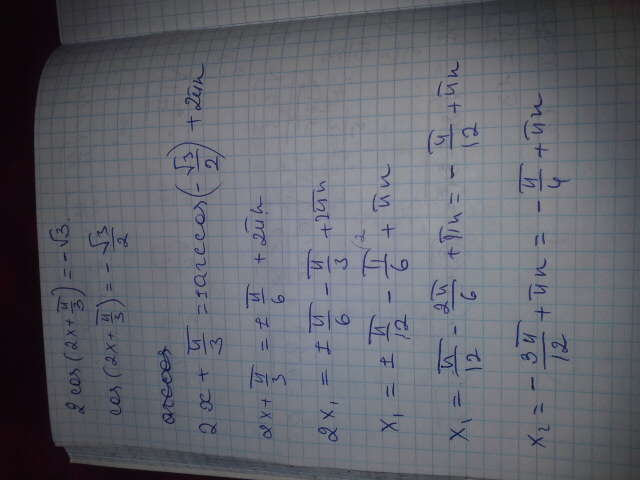 2 cos (2x + π/3) = -√3
cos (2x + π/3) = - √3/2
arccos
2x + π/3 = ± arccos (- √3/2) + 2πn
2x + π/3 = ± π/6 + 2πn
2x₁ = ± π/6 - π/3 + 2πn
x₁ = ± π/12 - π/6 (2 + πn
x₁ = π/12 - 2π/6 + πn = - π/12 + πn
x₂ = - 3π/12 + πn = - π/4 + πn